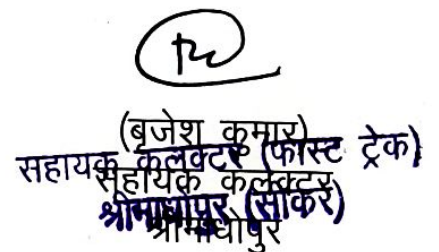 (बृजेश कुमार)
सहायक कलेक्टर (फास्ट ट्रेक)
सहायक कलेक्टर
श्रीमाधोपुर (सीकर)
श्रीमाधोपुर